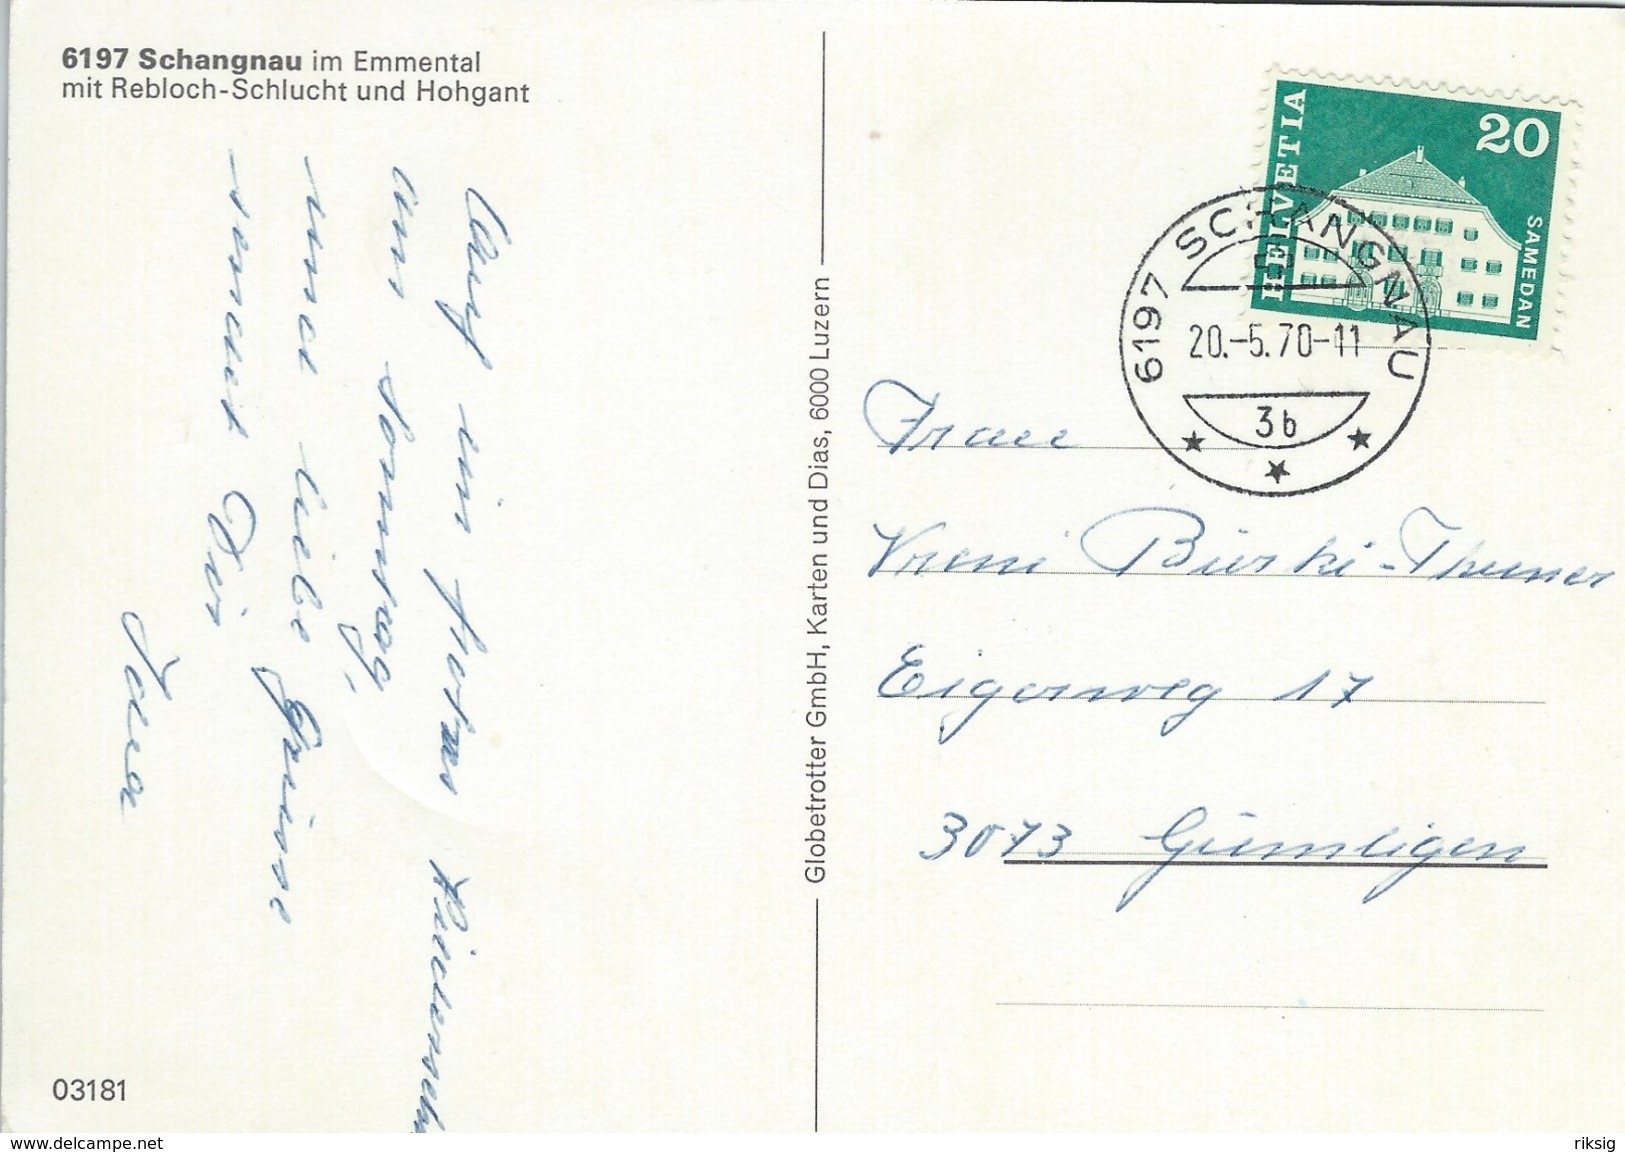 6197 Schangnau im Emmental
mit Rebloch-Schlucht und Hohgant
Auf ein frohes Wiedersehn
am Sonntag,
und liebe Grüsse
sendet Dir
HELVETIA
20
SAMEDAN
6197 SCHANGNAU
20.-5.70-11
3b
Frau
Vreni Bürki-Thuner
Eigerweg 17
3073 Gümligen
Globetrotter GmbH, Karten und Dias, 6000 Luzern
03181
www.delcampe.net
riksig